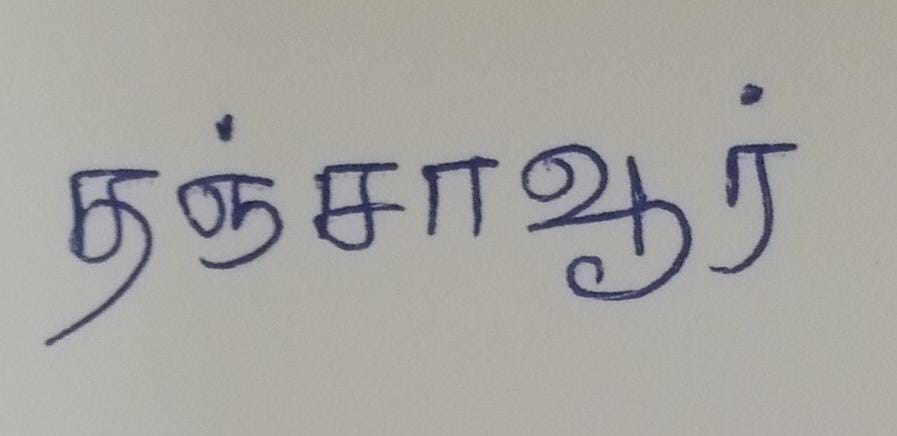 தஞ்சாவூர்